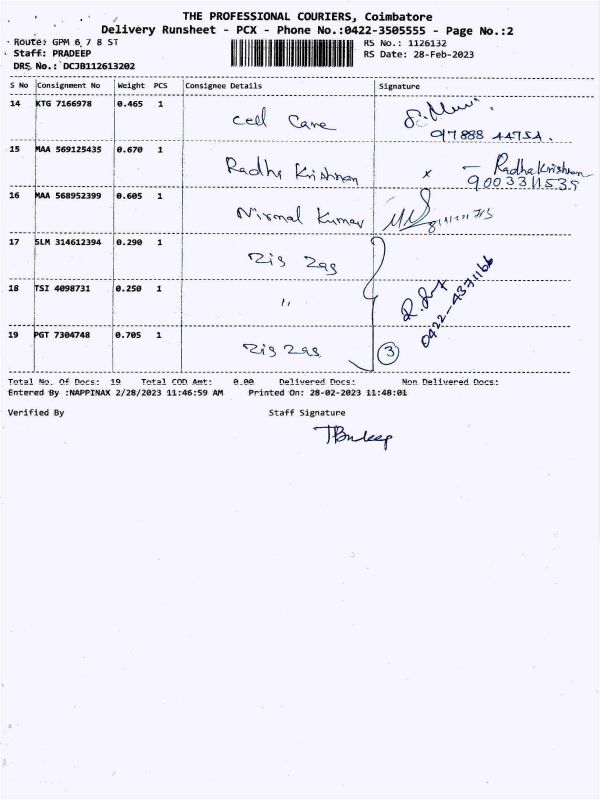 THE PROFESSIONAL COURIERS, Coimbatore
Delivery Runsheet - PCX - Phone No.:0422-3505555 - Page No.:2
Route: GPM 6 7 8 ST
RS No.: 1126132
Staff: PRADEEP
RS Date: 28-Feb-2023
DRS No.: DCJB112613202
S No Consignment No Weight PCS Consignee Details Signature
14 KTG 7166978 0.465 1 Cell Care
15 MAA 569125435 0.670 1 Radha Krishnan x — RadhaKrishnan
9003311539
16 MAA 568952399 0.605 1 Nirmal Kumar
17 SLM 314612394 0.290 1 Zig Zag
18 TSI 4098731 0.250 1 "
0422-4371166
19 PGT 7304748 0.705 1 Zig Zag 3
Total No. Of Docs: 19 Total COD Amt: 0.00 Delivered Docs: Non Delivered Docs:
Entered By :NAPPINAX 2/28/2023 11:46:59 AM Printed On: 28-02-2023 11:48:01
Verified By Staff Signature